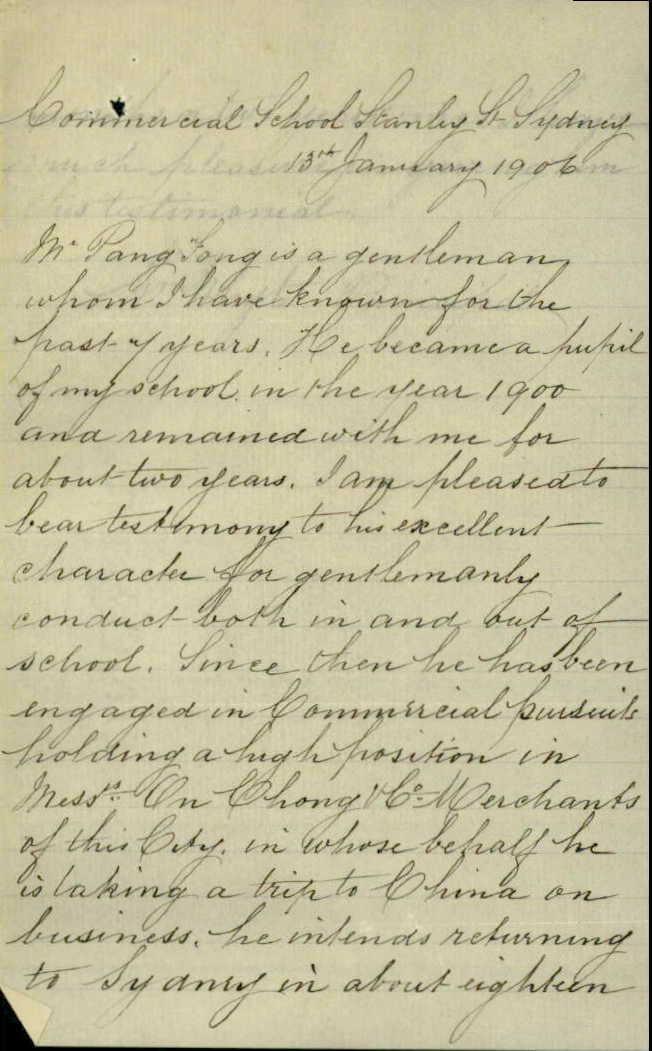 Commercial School Stanley St Sydney
13th January 1906
Mr Pang Fong is a gentleman
whom I have known for the
past 7 years. He became a pupil
of my school in the year 1900
and remained with me for
about two years. I am pleased to
bear testimony to his excellent
character for gentlemanly
conduct both in and out of
school. Since then he has been
engaged in Commercial pursuits
holding a high position in
Messrs. On Chong & Co Merchants
of this City. in whose behalf he
is taking a trip to China on
business. he intends returning
to Sydney in about eighteen